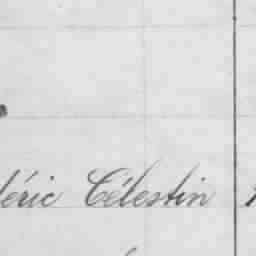 déric Célestin